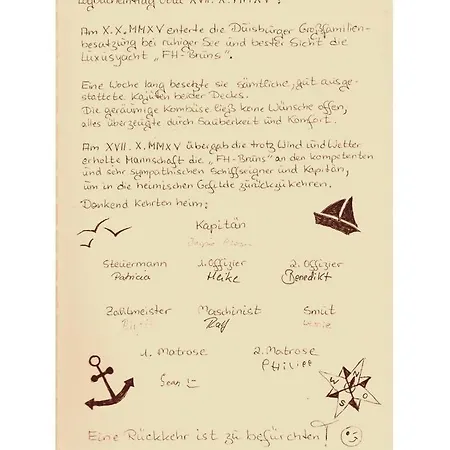 Logbucheintrag vom XVII. X. MMXV:
Am X. X. MMXV enterte die Duisburger Großfamilien-
besatzung bei ruhiger See und bester Sicht die
Luxusyacht „FH-Bruns".
Eine Woche lang besetzte sie sämtliche, gut ausge-
stattete Kajüten beider Decks.
Die geräumige Kombüse ließ keine Wünsche offen,
alles überzeugte durch Sauberkeit und Komfort.
Am XVII. X. MMXV übergab die trotz Wind und Wetter
erholte Mannschaft die „FH-Bruns" an den kompetenten
und sehr sympathischen Schiffseigner und Kapitän,
um in die heimischen Gefilde zurückzukehren.
Dankend kehrten heim:
Kapitän
Steuermann 1. Offizier 2. Offizier
Patricia Heike Benedikt
Zahlmeister Maschinist Smut
Ralf
1. Matrose 2. Matrose
Philipp
N O S W
Eine Rückkehr ist zu befürchten!